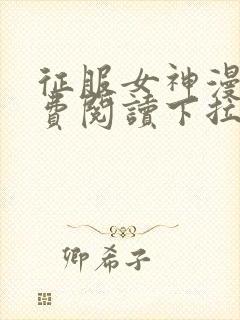 征服女神漫
費閱讀下拉
卿希子